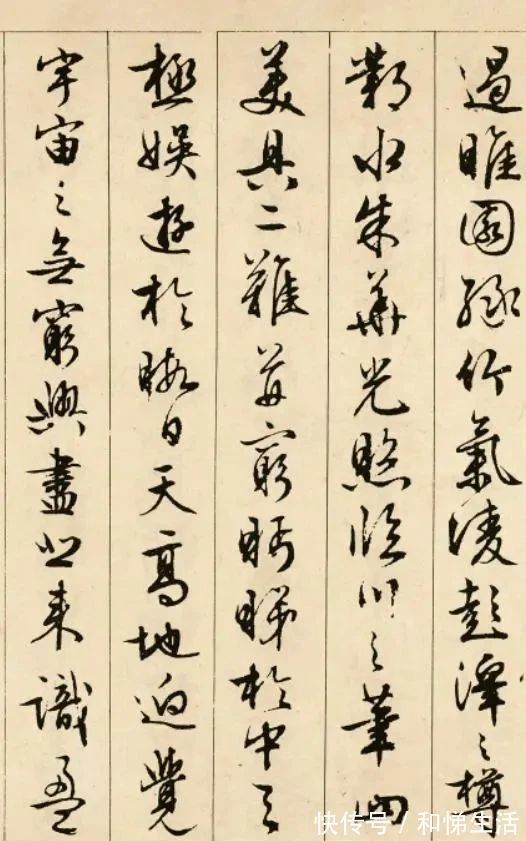 遏睢園綠竹氣凌彭澤之樽
鄴水朱華光照臨川之筆四
美具二難并窮眄睇於中天
極娛遊於暇日天高地逈覺
宇宙之無窮興盡悲來識盈
快传号/和悌生活